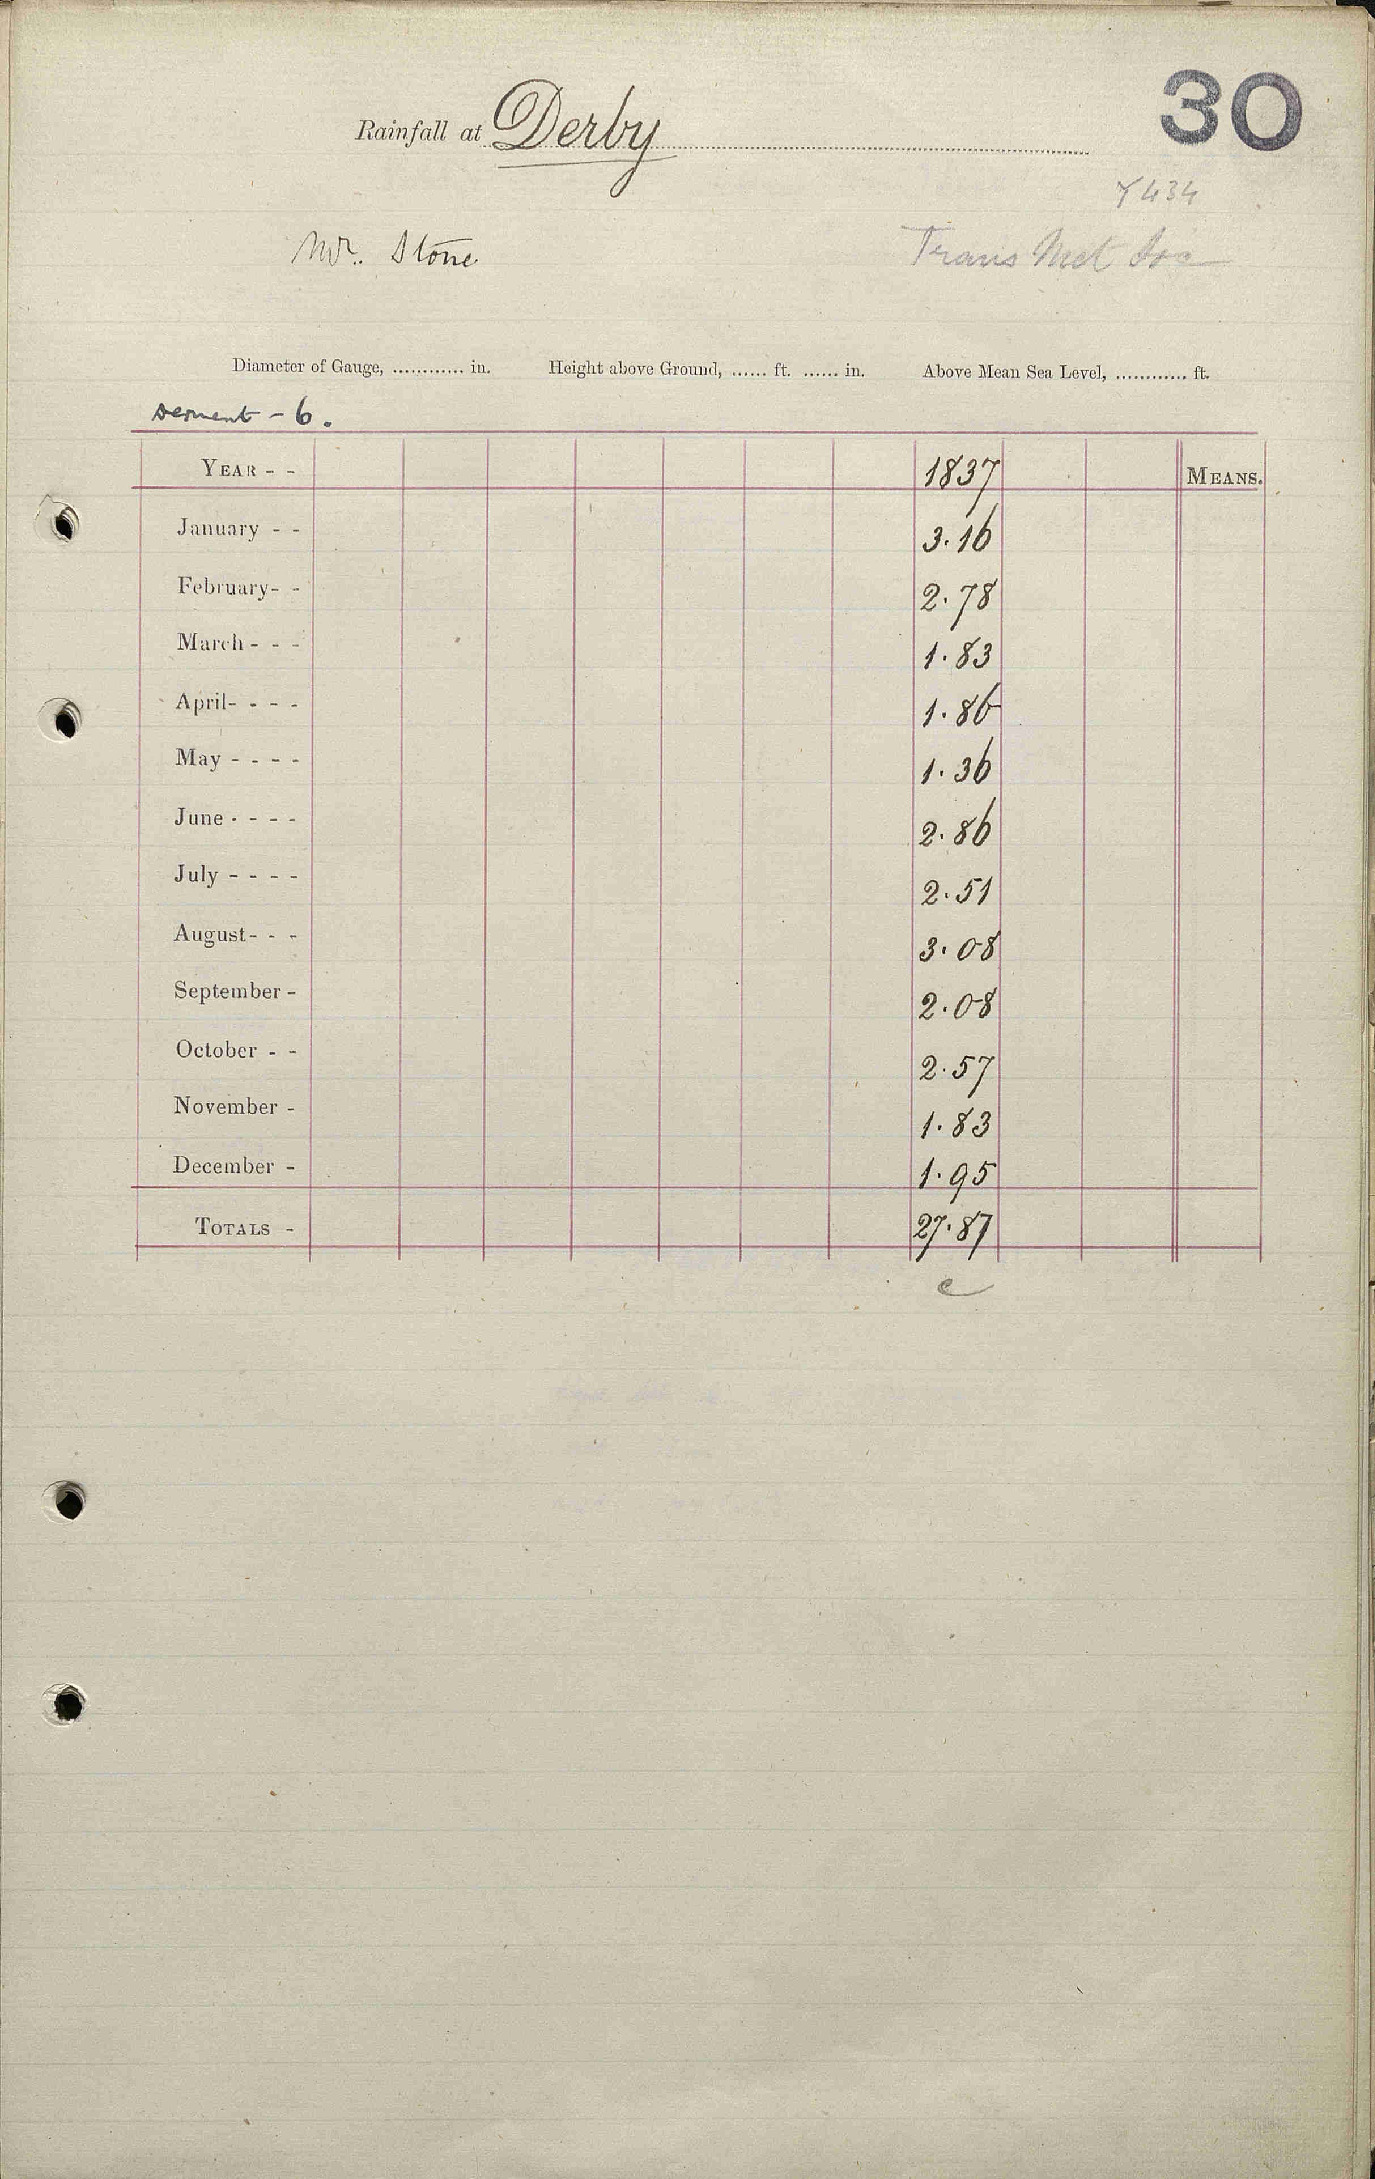 30
Rainfall at Derby
Y434
Mr. Stone
Trans Met Soc
Diameter of Gauge, ............ in. Height above Ground, ...... ft. ...... in. Above Mean Sea Level, ............ ft.
Derwent - 6.
YEAR - - 1837 MEANS.
January - - 3.16
February- - 2.78
March - - - 1.83
April- - - - 1.86
May - - - - 1.36
June - - - - 2.86
July - - - - 2.51
August- - - 3.08
September - 2.08
October - - 2.57
November - 1.83
December - 1.95
TOTALS - 27.87
c